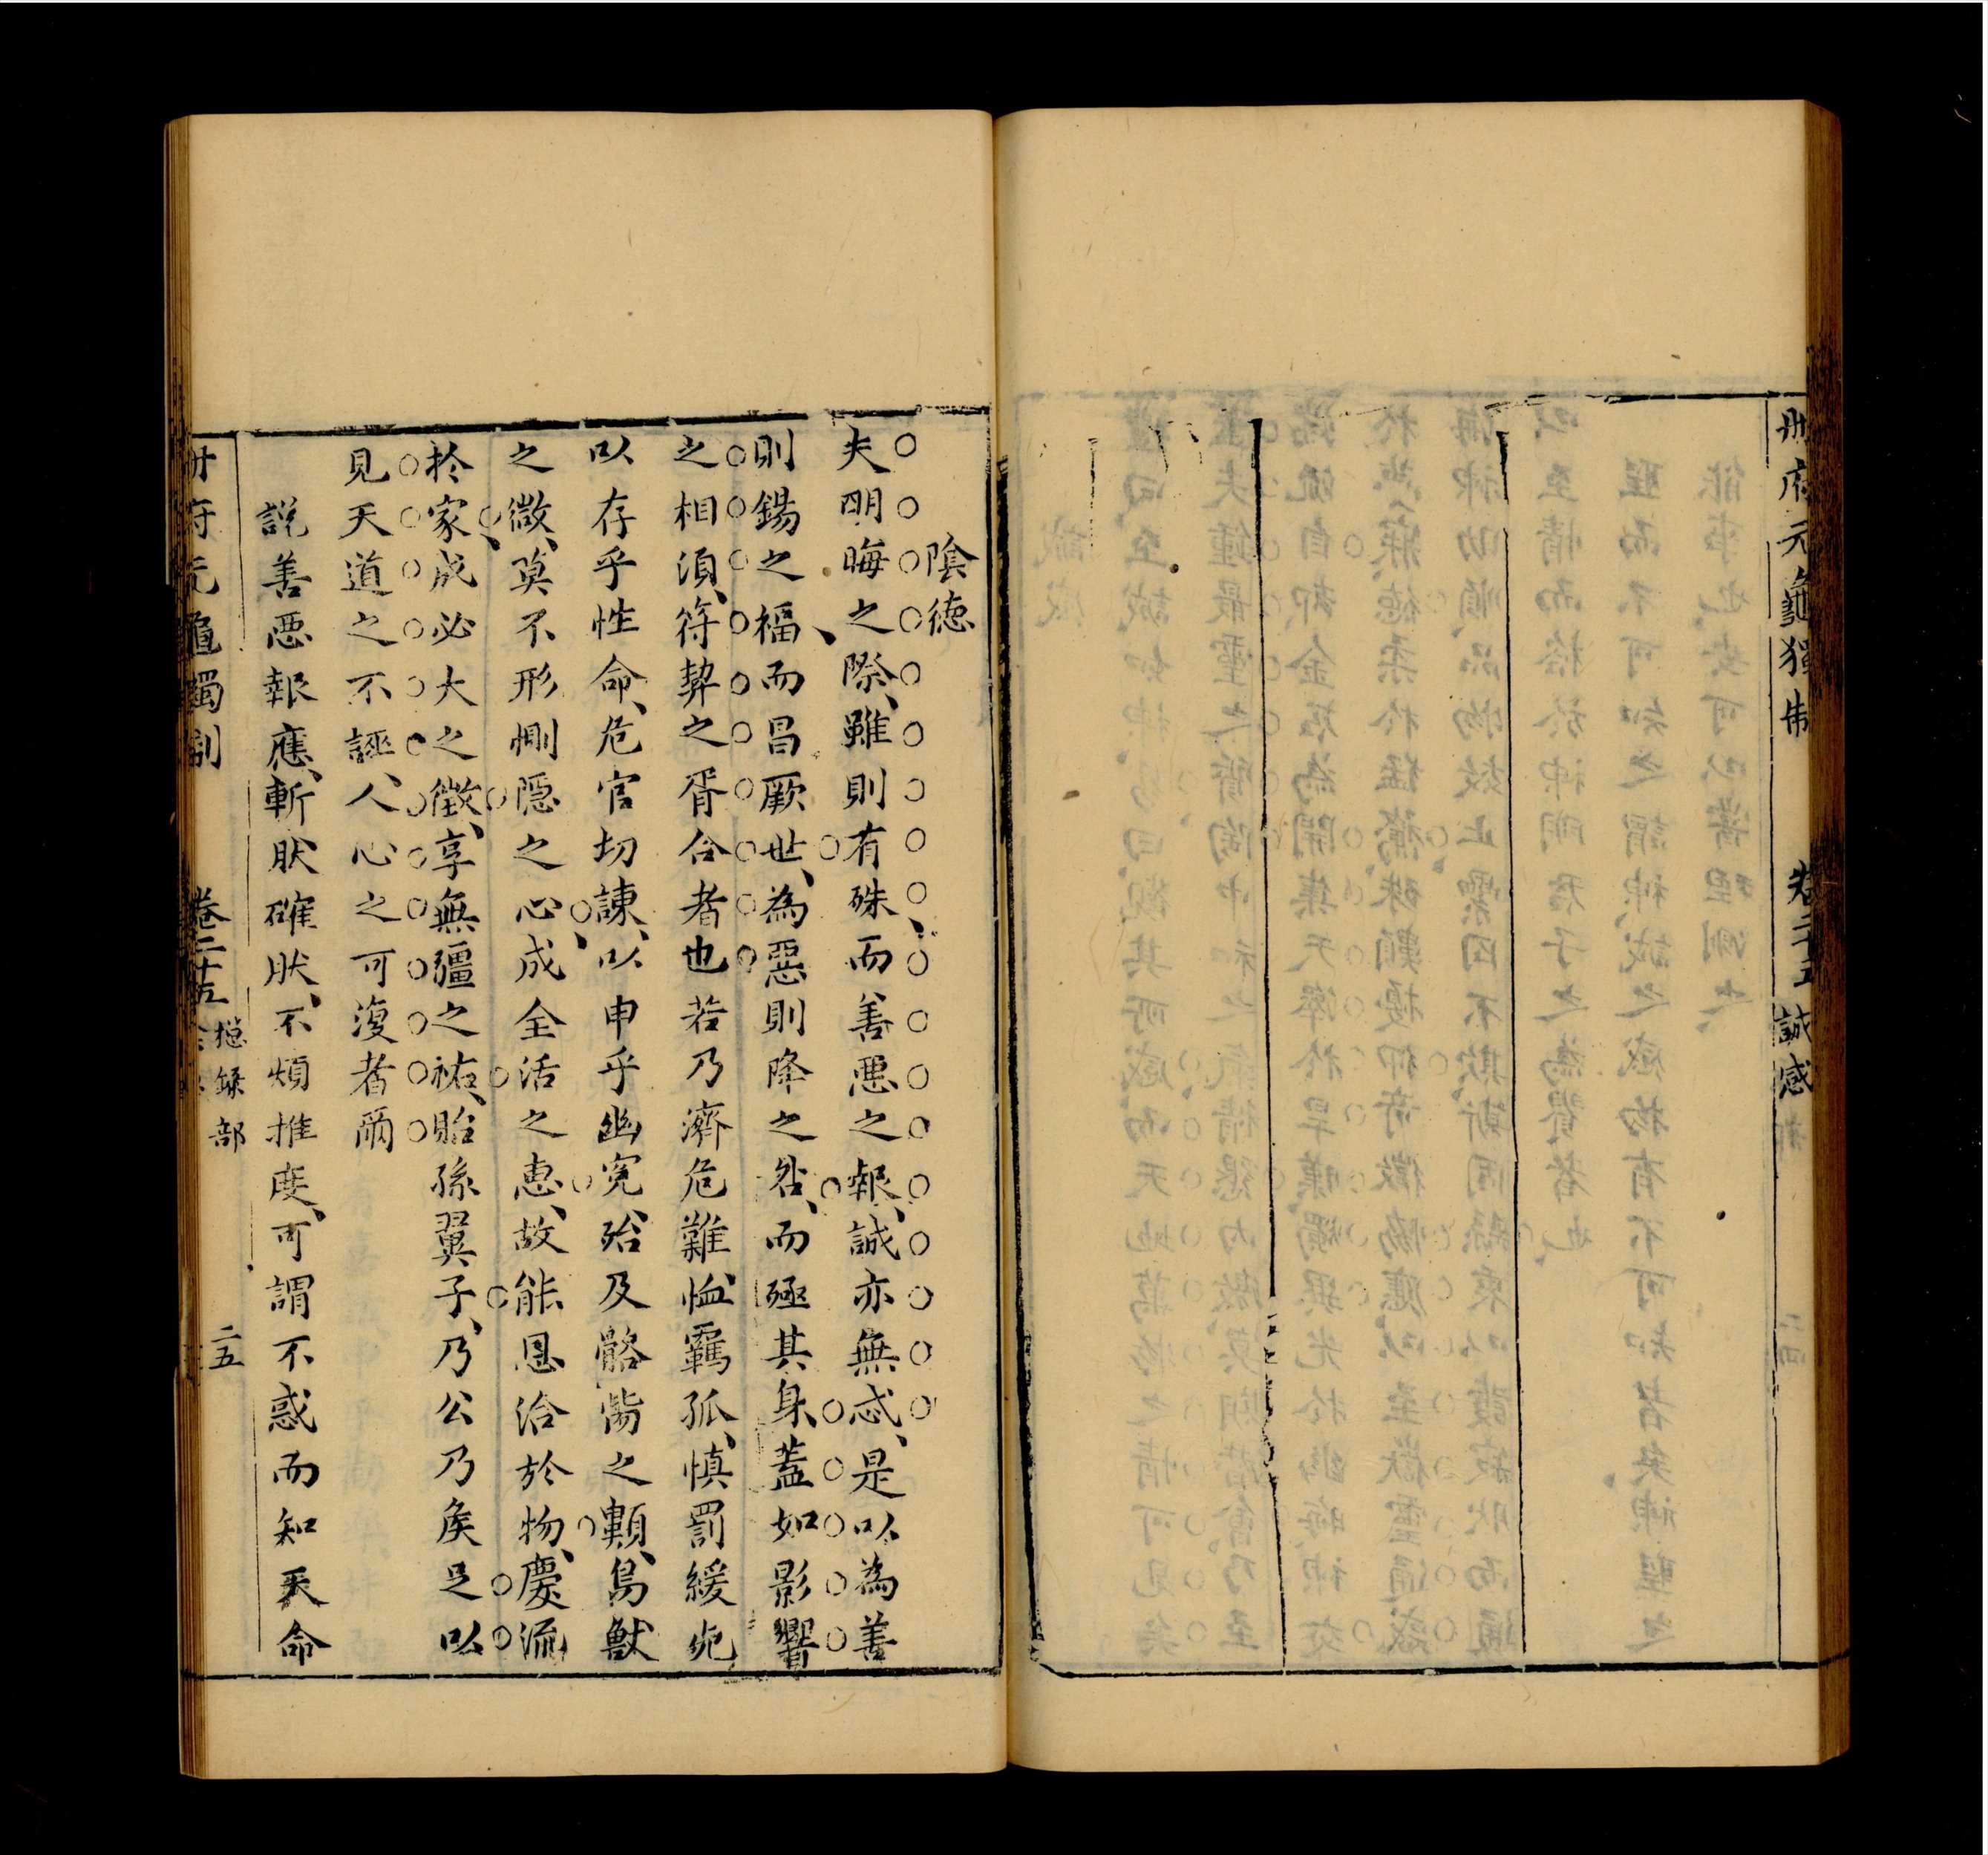 冊府元龜獨制　卷二十五　誠感
陰德
夫明晦之際、雖則有殊、而善惡之報、誠亦無忒、是以為善
則錫之福、而昌厥世、為惡則降之咎、而殛其身、蓋如影響
之相須、符契之胥合者也若乃濟危難、恤羈孤、慎罰緩死
以存乎性命、危官切諫、以申乎幽冤、殆及骼胔之類、鳥獸
之微、莫不形惻隱之心、成全活之惠、故能恩洽於物、慶流
於家、成必大之徵、享無疆之祐、貽孫翼子、乃公乃侯足以
見天道之不誣、人心之可復者爾
說善惡報應、斬然確然、不煩推度、可謂不惑而知天命
冊府元龜獨制　卷二十五　總錄部　二五